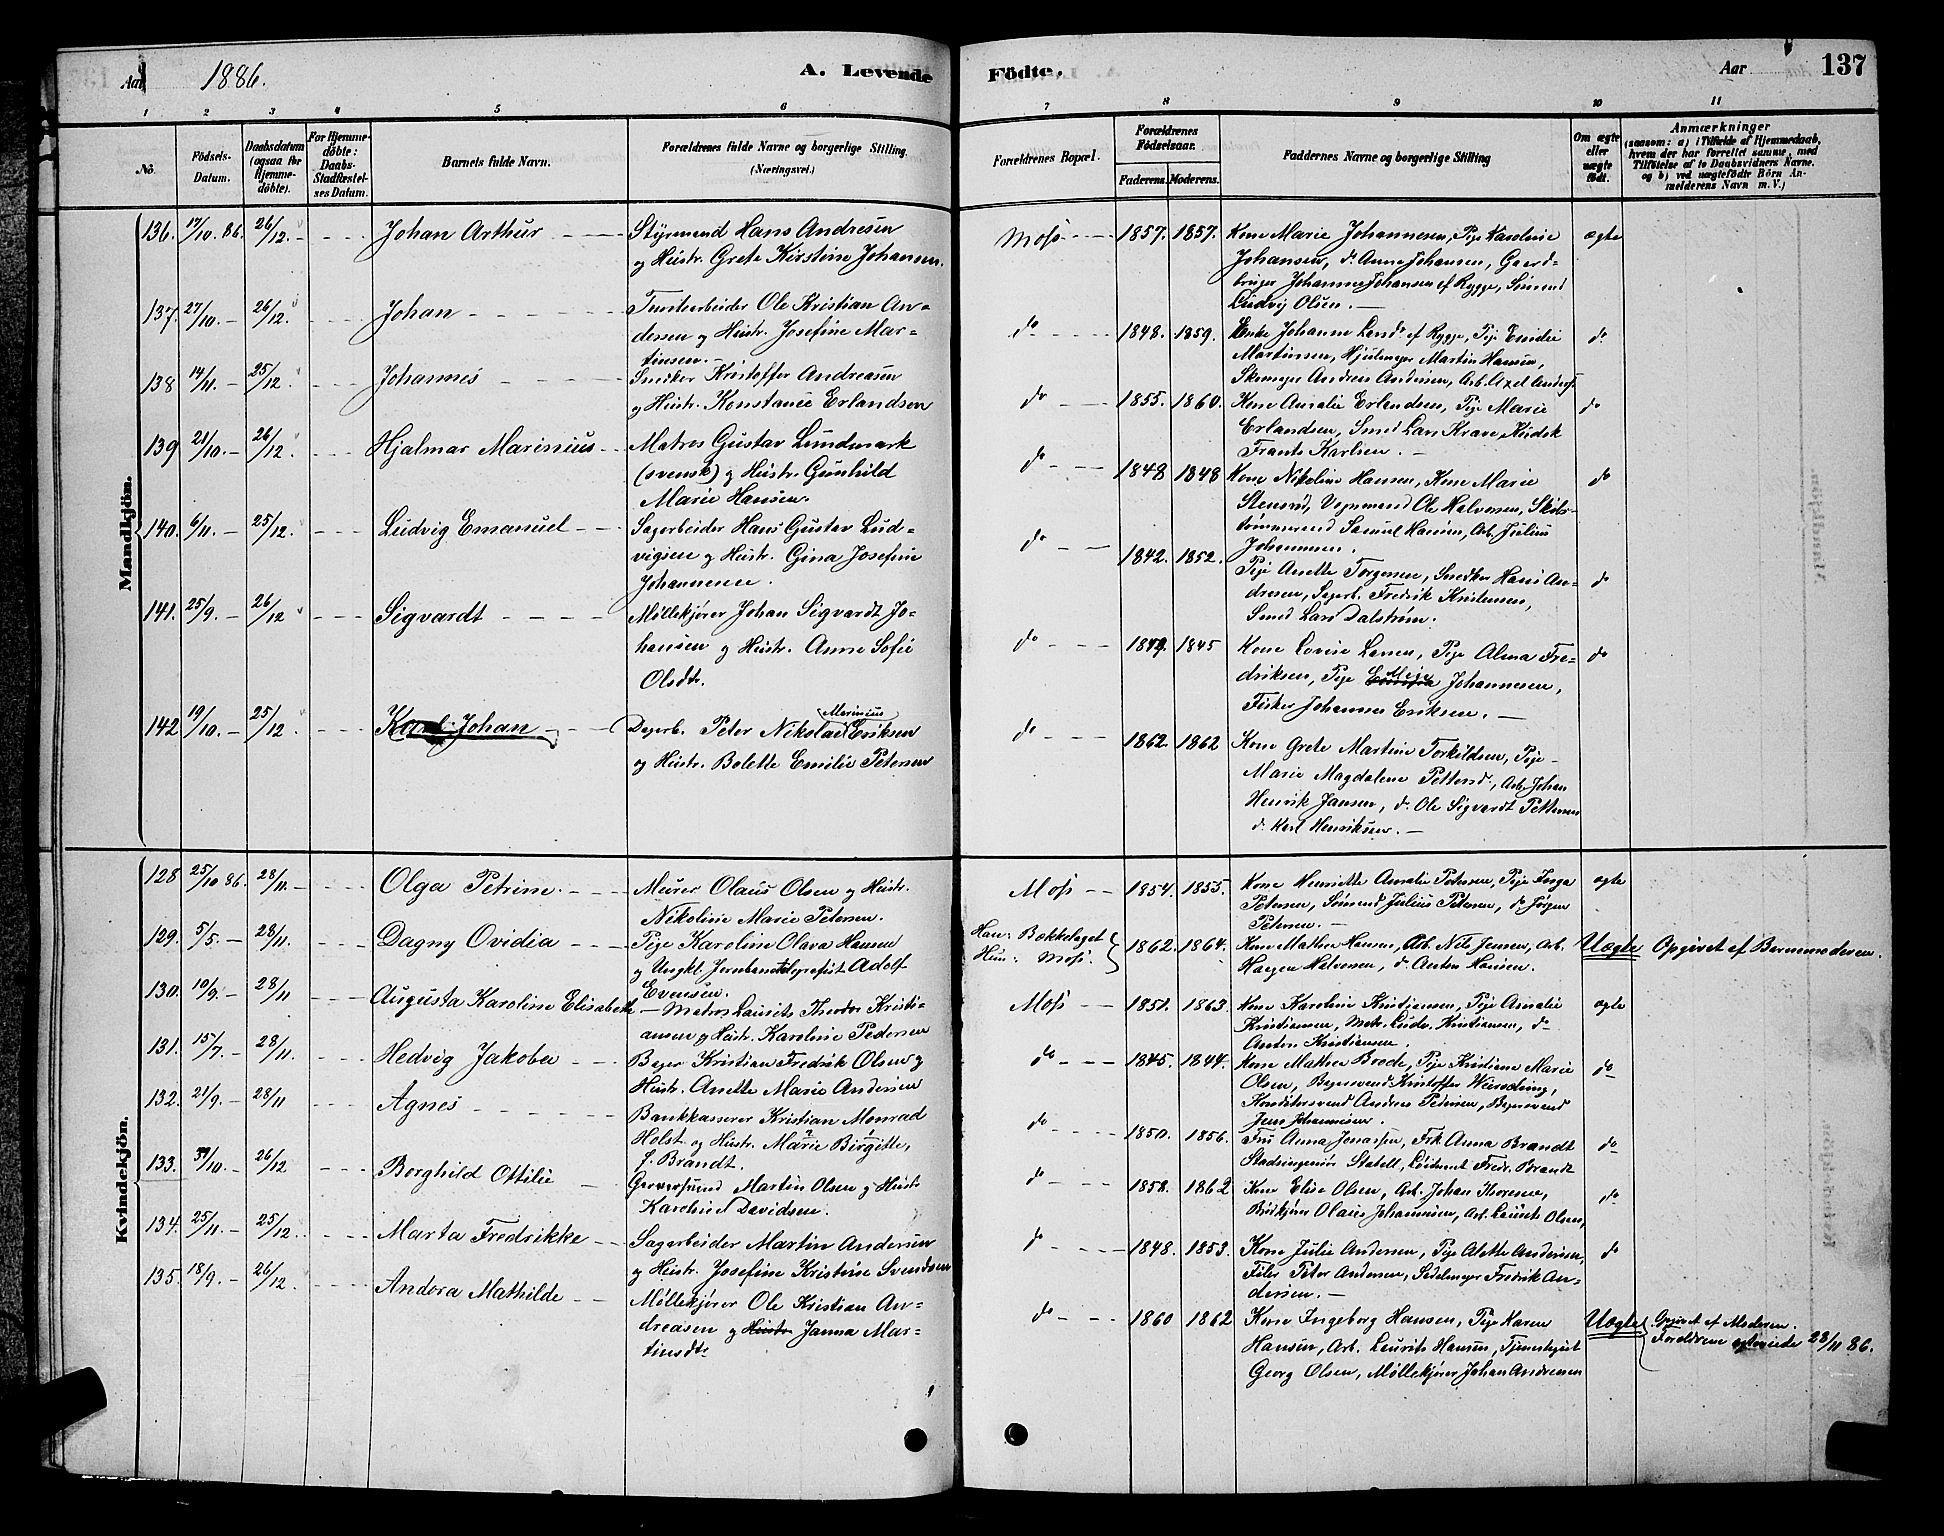 Aar 1886. A. Levende Födte. Aar 137
1 2 3 4 5 6 7 8 9 10 11
No. Födsels-Datum. Daabsdatum (ogsaa för Hjemme-döbte). For Hjemme-döbte: Daabs-Stadfæstelses Datum. Barnets fulde Navn. Forældrenes fulde Navne og borgerlige Stilling. (Næringsvei.) Forældrenes Bopæl. Forældrenes Födselsaar. Faderens. Moderens. Faddernes Navne og borgerlige Stilling Om ægte eller uægte födt. Anmærkninger (saasom: a) i Tilfælde af Hjemmedaab, hvem der har forrettet samme, med Tilföielse af to Daabsvidners Navne, og b) ved uægtefödte Börn Anmelderens Navn m. V.)
Mandkjön.
136. 17/10. 86. 26/12. - Johan Arthur Styrmand Hans Andresen
og Hustr. Grete Kirstine Johansen.
Moss 1857. 1857. Kone Marie Johannesen, Pige Karoline ægte
Johansen, do Anne Johansen, Gaard-
bruger Johannes Johansen af Rygge, Sömand
Ludvig Olsen. -
137. 27/10. - 26/12. Johan Tomtearbeider Ole Kristian An-
dersen og Hustr. Josefine Mar-
tinsen. -
do 1848. 1859. Enke Johanne Lend af Rygge, Pige Emilie do
Martinsen, Hjulmager Martin Hansen,
Skomager Andreas Andersen, Arb. Axel Anders.
138 14/11. - 25/12. Johannes Snedker Kristoffer Andreasen
og Hustr. Konstance Erlandsen
do 1855. 1860. Kone Amalie Erlandsen, Pige Marie do
Erlandsen, Smed Lars Krave, Kudsk
Frants Karlsen. -
139 21/10. - 26/12. Hjalmar Marinius Matros Gustav Lundmark
(svensk) og Hustr. Gunhild
Marie Hansen.
do 1848 1848 Kone Nikoline Hansen, Kone Marie do
Stensrød, Vognmand Ole Halvorsen, Skibs-
tømmermand Samuel Hansen, Arb. Julius
Johannesen.
140. 6/11. - 25/12. Ludvig Emanuel Sagarbeider Hans Gustav Lud-
vigsen og Hustr. Gina Josefine
Johannesen.
do 1842. 1852. Pige Anette Torgersen, Snedker Hans An- do
dresen, Sagarb. Fredrik Kristensen,
Smed Lars Dalstrøm.
141. 25/9. - 26/12 Sigvardt Møllekjører Johan Sigvardt Jo-
hansen og Hustr. Anne Sofie
Olsdtr.
do 1849. 1845 Kone Lovise Larsen, Pige Alma Fre- do
driksen, Pige Johannesen,
Fisker Johannes Eriksen. -
142 19/10. - 25/12. Karl Johan Dagarb. Peter Nikolai Marinius Eriksen
og Hustr. Bolette Emilie Petersen
do 1862. 1862 Kone Grete Martine Torkildsen, Pige
Marie Magdalene Petters, Arb. Johan
Henrik Jansen, do Ole Sigvardt Pettersen
do Karl Henriksen. -
Kvindekjön.
128 25/10 86. 28/11. - Olga Petrine. Murer Olaus Olsen og Hustr.
Nikoline Marie Petersen.
Moss 1854. 1855. Kone Henriette Amalie Petersen, Pige Inga ægte
Petersen, Sømand Julius Petersen, do Jørgen
Petersen. -
129. 5/5. - 28/11. Dagny Ovidia Pige Karoline Olava Hansen
og Ungkl. Jernbanetelegrafist Adolf
Evensen.
Han: Bækkelaget
Hun: Moss. 1862. 1864. Kone Mathea Hansen, Arb. Nils Jensen, Arb. Uægte Opgivet af Barnemoderen.
Haagen Halvorsen, do Anton Hansen.
130. 10/9. - 28/11 Augusta Karoline Elisabeth Matros Laurits Theodor Kristi-
ansen og Hustr. Karoline Pedersen
Moss 1851. 1863. Kone Karoline Kristiansen, Pige Amalie ægte
Kristiansen, Matr. Ludv. Kristiansen, do
Anton Kristiansen.
131. 15/7. - 28/11. Hedvig Jakoba Bager Kristian Fredrik Olsen og
Hustr. Anette Marie Andersen
do 1845. 1844. Kone Mathea Brode, Pige Kristiane Marie do
Olsen, Bagersvend Kristoffer,
Konditorsvend Andreas Pedersen, Bagersvend
Jens Johannesen.
132. 21/9. - 28/11 Agnes Bankkasserer Kristian Monrad
Holst og Hustr. Marie Birgitte,
f. Brandt.
do 1850. 1856. Fru Anna Jonassen, Frk Anna Brandt do
Stadsingeniør Stabell, Løitnant Fredr. Brandt
133. 31/10. - 26/12 Borghild Ottilie Garversvend Martin Olsen og Hustr.
Karoline Davidsen.
do 1858. 1862 Kone Elise Olsen, Arb. Johan Thoresen, do
Olaus Johannesen, Arb. Laurits Olsen,
134. 25/11. - 25/12. Marta Fredrikke Sagarbeider Martin Andersen
og Hustr. Josefine Kristine Svendsen
do 1848. 1853. Kone Julie Andersen, Pige Alette Andersen, do
Filer Peter Andersen, Sadelmager Fredrik An-
dersen. -
135. 18/9. - 26/12. Andora Mathilde Møllekjører Ole Kristian An-
dreasen og Hustr Janna Mar-
tinsdtr
do 1860 1862 Kone Ingeborg Hansen, Pige Karen Uægte Opgivet af Moderen.
Hansen, Arb. Laurits Hansen, Tjenestegut Forældrene egteviede 28/11 86.
Georg Olsen, Møllekjører Johan Andresen